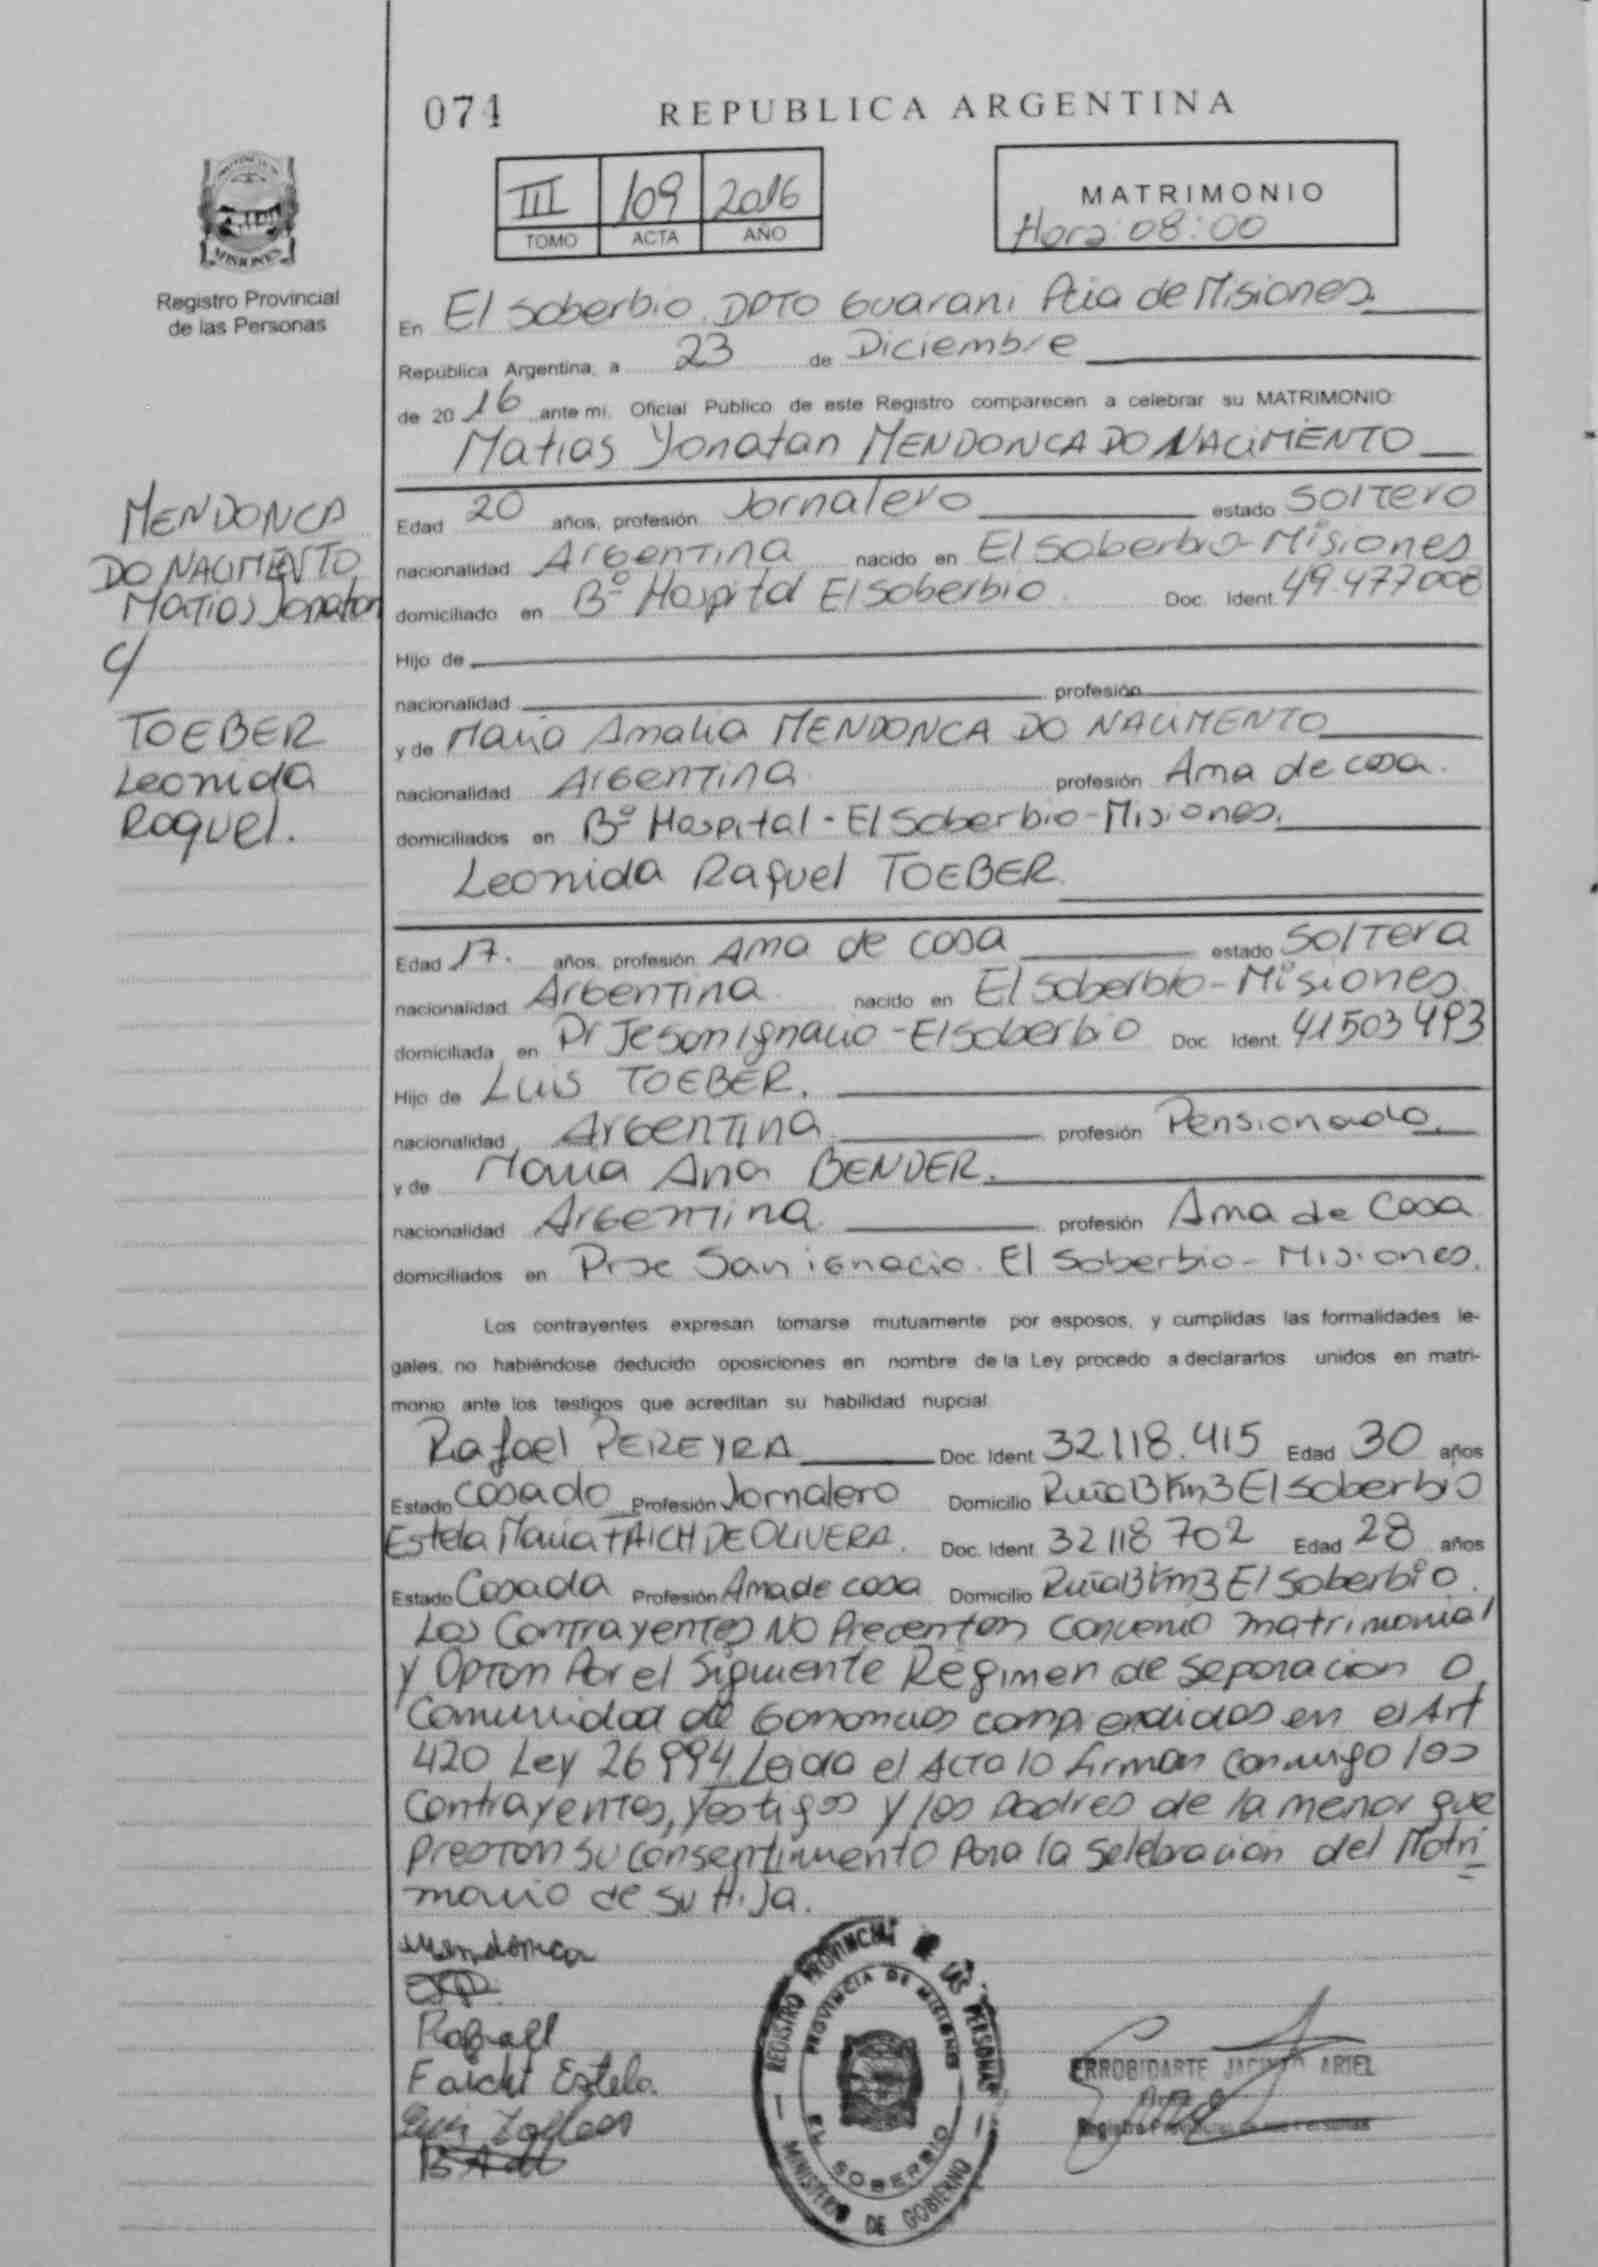 074
REPUBLICA ARGENTINA
III 109 2016
TOMO ACTA AÑO
MATRIMONIO
Hora: 08:00
MISIONES
Registro Provincial
de las Personas
En El Soberbio. DPTO Guarani Pcia de Misiones.
República Argentina, a 23 de Diciembre
de 2016 ante mi, Oficial Público de este Registro comparecen a celebrar su MATRIMONIO:
Matias Yonatan MENDONCA DO NACIMENTO
MENDONCA
DO NACIMENTO
Matias Jonatan
c/
TOEBER
Leonida
Raquel.
Edad 20 años, profesión Jornalero estado Soltero
nacionalidad Argentina nacido en El Soberbio-Misiones
domiciliado en Bº Hospital El Soberbio. Doc. Ident. 49.477008
Hijo de
nacionalidad profesión
y de Maria Amalia MENDONCA DO NACIMENTO
nacionalidad Argentina profesión Ama de casa.
domiciliados en Bº Hospital - El Soberbio - Misiones.
Leonida Raquel TOEBER.
Edad 17. años, profesión Ama de casa estado Soltera
nacionalidad Argentina nacido en El Soberbio - Misiones.
domiciliada en Ignacio - El Soberbio Doc. Ident. 41503493
Hijo de Luis TOEBER.
nacionalidad Argentina profesión Pensionado.
y de Maria Ana BENDER.
nacionalidad Argentina profesión Ama de Casa
domiciliados en Prje San ignacio. El Soberbio - Misiones.
Los contrayentes expresan tomarse mutuamente por esposos, y cumplidas las formalidades le-
gales, no habiéndose deducido oposiciones en nombre de la Ley procedo a declararlos unidos en matri-
monio ante los testigos que acreditan su habilidad nupcial
Rafael PEREYRA Doc. Ident. 32118.415 Edad 30 años
Estado Casado Profesión Jornalero Domicilio Ruta 13 Km3 El Soberbio
Estela Maria FAICH DE OLIVERA. Doc. Ident. 32118702 Edad 28 años
Estado Casada Profesión Ama de casa Domicilio Ruta 13 Km3 El Soberbio.
Los Contrayentes NO Precentan convenio matrimonial
y Optan Por el Siguiente Régimen de Separacion O
Comunidad de Ganancias comprendidas en el Art
420 Ley 26994. Leida el Acta lo firman conmigo los
Contrayentes, Testigos y los Padres de la menor que
prestan su consentimiento Para la Selebracion del Matri
monio de su Hija.
Mendonca
Rafael
Faicht Estela.
REGISTRO PROVINCIAL DE LAS PERSONAS
PROVINCIA DE MISIONES
EL SOBERBIO
MINISTERIO DE GOBIERNO
ERROBIDARTE JACINTO ARIEL